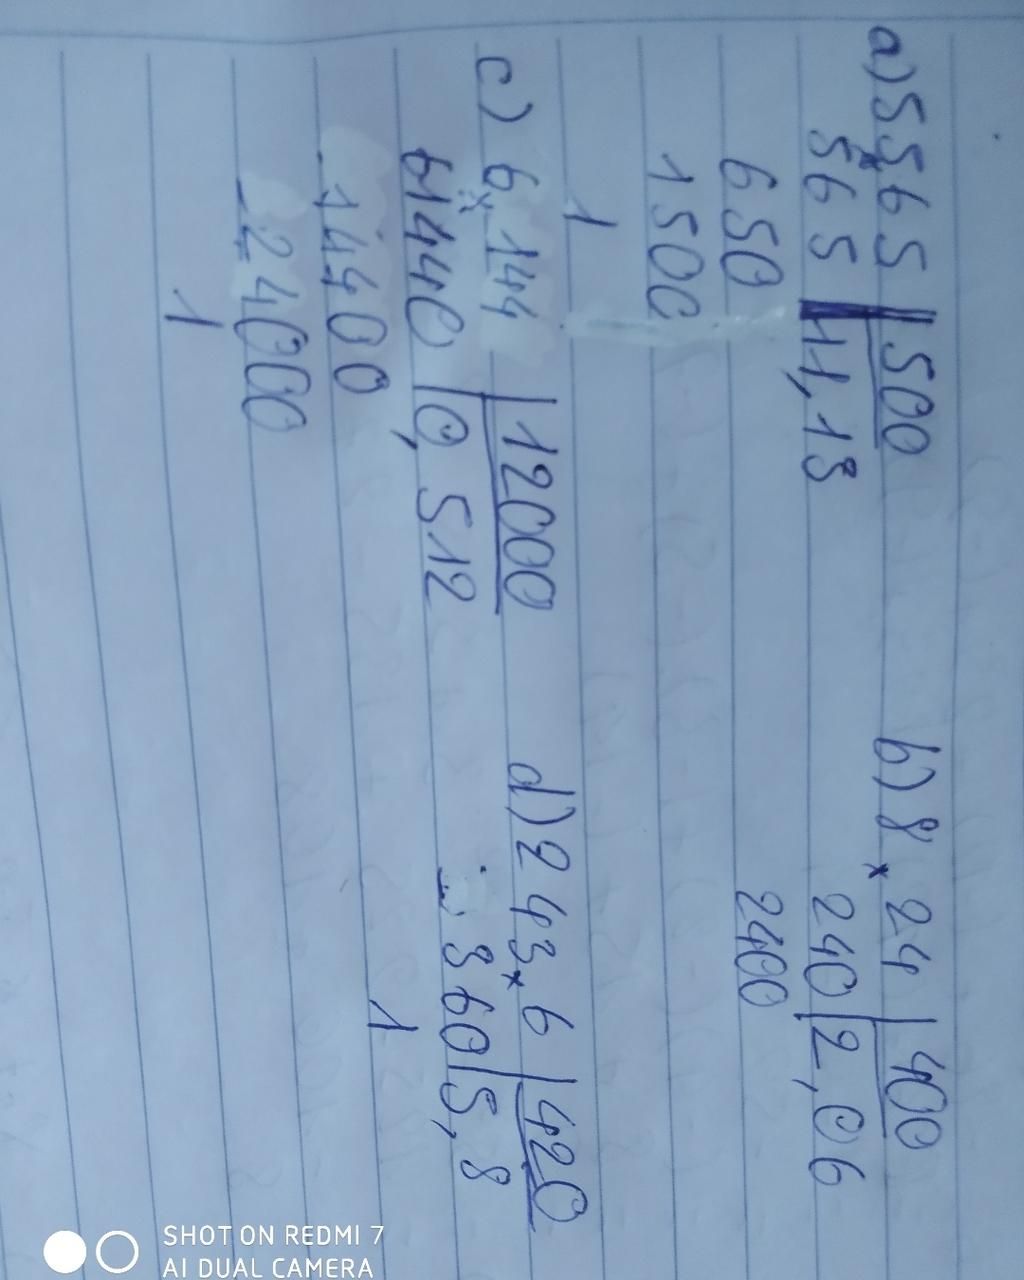 a) 55,65 | 500 b) 8,24 | 400
565 | 11,13 240 | 2,06
650 2400
1500
1
c) 6,144 | 12000 d) 243,6 | 420
61440 | 0,512 3360 | 5,8
14400 1
24000
1
SHOT ON REDMI 7
AI DUAL CAMERA